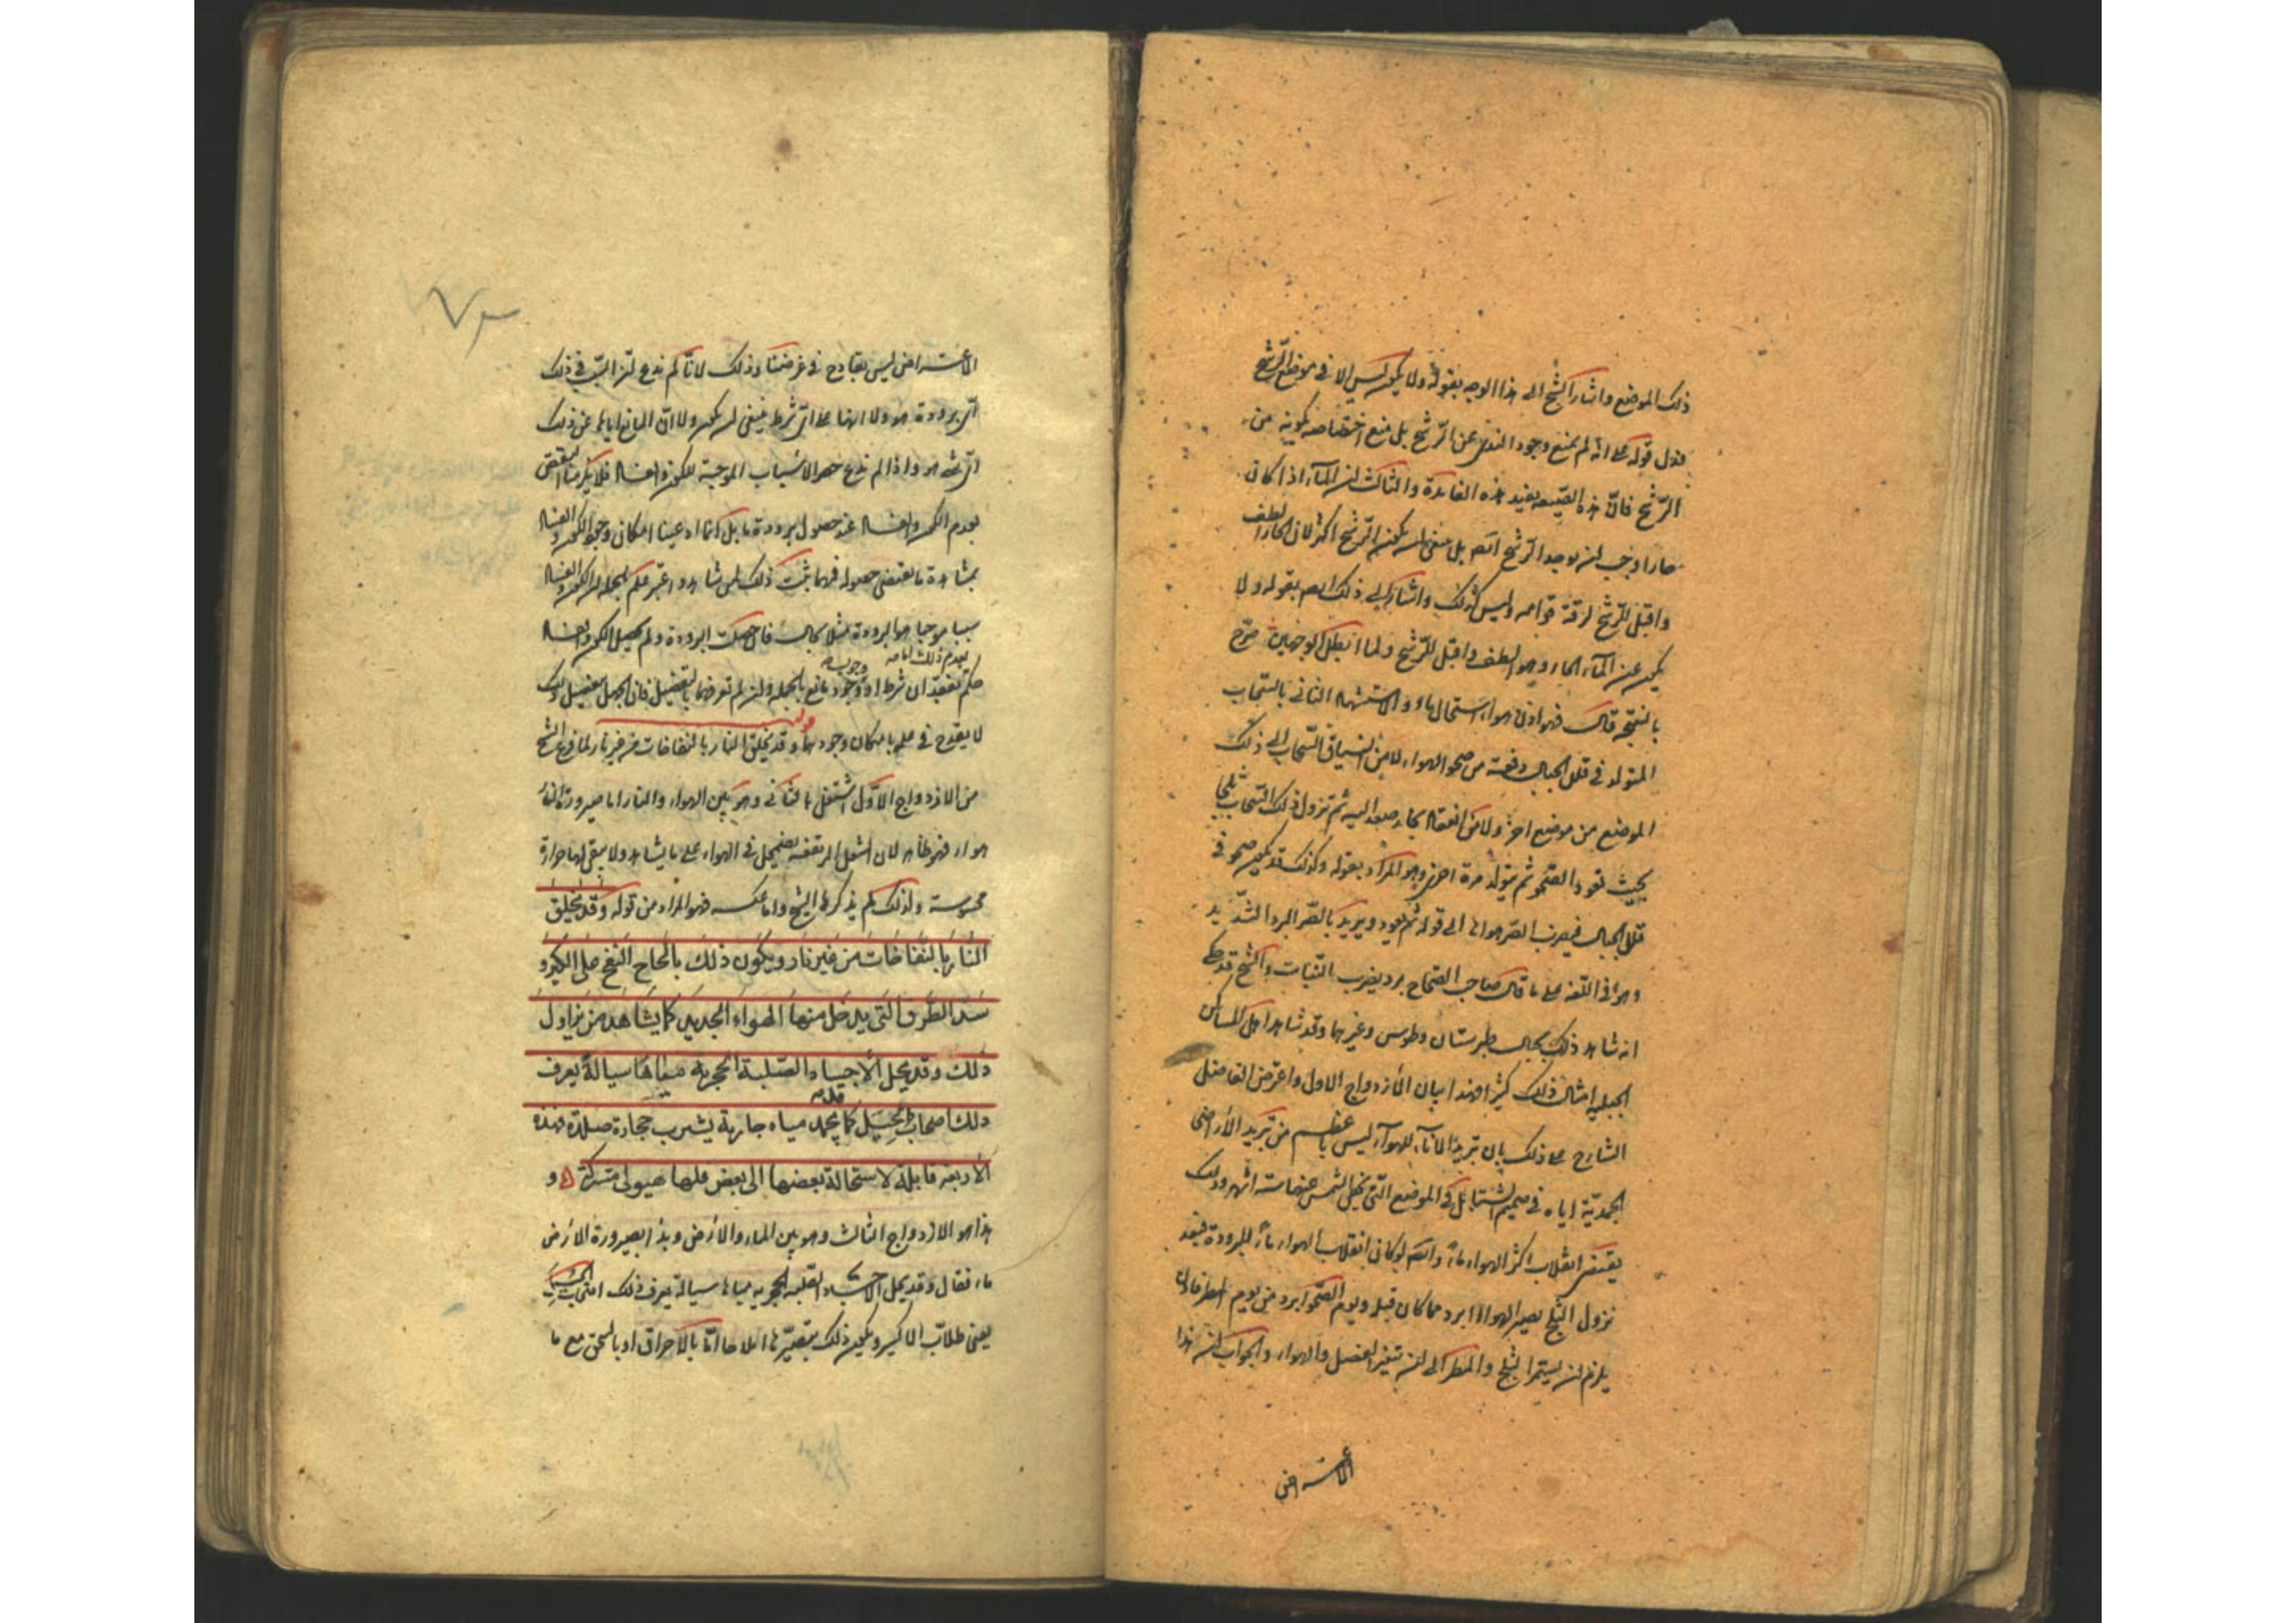 ذلك الموضع واشار الشيخ الى هذا الوجه بقوله ولا يكون ليس الا في موضع الرشح
فدل قوله على انه لم يمنع وجود الندى عن الرشح بل منع اختصاصه بكونه من
الرشح فان هذه الصيغة يفيد هذه الفايدة والثالث ان الماء اذا كان
حارا وجب ان يوجد الرشح ايضا بل ينبغي ان يكون الرشح اكثر لان الحار الطف
واقبل للرشح لرقة قوامه وليس كذلك واشار الى ذلك ايضا بقوله ولا
يكون عن الماء الحار وهو الطف واقبل للرشح ولما ابطل الوجهين صرح
بالنتيجة قال فهو اذن هواء استحال ماء والاستشهاد الثاني بالسحاب
المتولد في قلل الجبال دفعة من صحو الهواء لا من انسياق السحاب الى ذلك
الموضع من موضع اخر ولا من انعقاد بخار صعد اليه ثم نزول ذلك السحاب ثلجا
بحيث يعود الصحو ثم يتولد مرة اخرى وهو المراد بقوله وكذلك قد يكون صحو في
قلل الجبال فيضرب الصر هواها الى قوله ثم يعود ويريد بالصر البرد الشديد
وهو في اللغة على ما قال صاحب الصحاح برد يضرب النبات والشيخ قد حكى
انه شاهد ذلك بجبال طبرستان وطوس وغيرهما وقد شاهد اهل المساكن
الجبلية امثال ذلك كثيرا فهذا بيان الازدواج الاول واعترض الفاضل
الشارح على ذلك بان تبريد الاناء للهواء ليس باعظم من تبريد الاراضي
الجمدية اياه في صميم الشتاء بل في المواضع التي تخفى الشمس عنها ستة اشهر وذلك
يقتضي انقلاب اكثر الهواء ماء وايضا لو كان انقلاب الهواء ماء للبرودة فبعد
نزول الثلج يصير الهواء ابرد مما كان قبله ويوم الصحو ابرد من يوم المطر فاذن
يلزم ان يستمر الثلج والمطر الى ان يتغير الفصل والهواء والجواب ان هذا
الاعتراض
الاعتراض ليس بقادح في غرضنا وذلك لانا لم ندع ان السبب في ذلك
اي برودة هو ولا انها على اي شرط ينبغي ان يكون ولا ان المانع اياها عن ذلك
اي شيء هو واذا لم ندع حصر الاسباب الموجبة للكون والفساد فلا يلزمنا النقض
بعدم الكون والفساد عند حصول برودة ما بل انما ادعينا امكان وجود الكون والفساد
بمشاهدة ما يقتضي حصوله فمهما ثبت ذلك لمن شاهد واعتبر علم بالجملة ان للكون والفساد
سببا موجبا هو البرودة مثلا بحال فان حصلت البرودة ولم يحصل الكون والفساد
حكم بفقدان شرط او وجود مانع بالجملة وان لم نعرفهما بالتفصيل فان الجهل بتفصيل ذلك
لا يقدح في علمه بامكان وجودها قوله وقد تخلق النار بالنفاخات من غير نار لما فرغ الشيخ
من الازدواج الاول اشتغل بالثاني وهو بين الهواء والنار اما صيرورة النار
هواء فهو ظاهر لان الشعل المرتفعة تضمحل في الهواء على ما يشاهد ولا يبقى لها حرارة
محسوسة ولذلك لم يذكرها الشيخ واما عكسه فهو المراد من قوله وقد تخلق
النار بالنفاخات من غير نار ويكون ذلك بالحاح النفخ على الكير و
سد الطرق التي يدخل منها الهواء الجديد كما يشاهد من يزاول
ذلك وقد يحل الاجساد الصلبة الحجرية مياها سيالة يعرف
ذلك اصحاب الحيل كما قد يجمد مياه جارية يشرب حجارة صلدة فهذه
الاربعة قابلة لاستحالة بعضها الى بعض فلها هيولى مشتركة و
هذا هو الازدواج الثالث وهو بين الماء والارض وبدأ بصيرورة الارض
ماء فقال وقد يحل الاجساد الصلبة الحجرية مياها سيالة يعرف ذلك اصحاب الحيل
يعني طلاب الاكسير ويكون ذلك بتصييرها املاحا اما بالاحراق او بالسحق مع ما